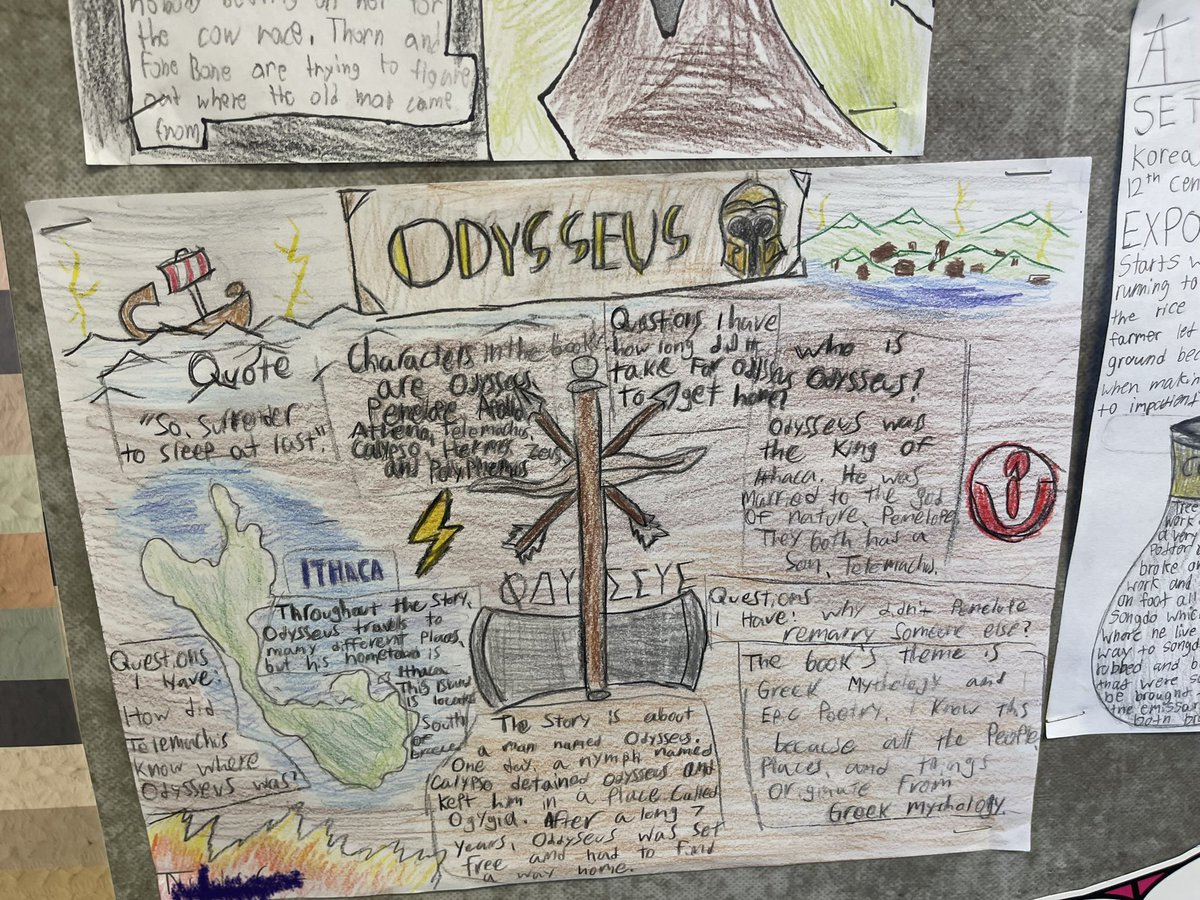 the cow race. Thorn and
Fone Bone are trying to figure
out where the old man came
from
ODYSSEUS
Quote
"So, surrender
to sleep at last".
Characters in the book
are Odysseus,
Penelope, Apollo,
Athena, Telemachus,
Calypso, Hermes, Zeus,
and Polyphemus
Questions I have
how long did it
take For Odysseus
To get home?
Who is
Odysseus?
Odysseus was
the King of
Ithaca. He was
married to the god
of nature, Penelope
They both has a
Son, Telemachus.
ITHACA
Throughout the Story,
Odysseus travels to
many different places,
but his hometown is
Ithaca
This Island
is locate
South
of
Questions
I have:
How did
Telemachus
know where
Odysseus was?
ΟΔΥΣΣΕΥΣ
Questions
I Have! why didn't Penelope
remarry someone else?
The book's theme is
Greek Mythology and
Epic Poetry. I know this
because all the People,
Places, and things
originate from
Greek mythology.
The Story is about
a man named Odysseus.
One day, a nymph named
Calypso detained Odysseus and
kept him in a place called
Ogygia. After a long 7
years, Oddyseus was set
free and had to find
a way home.
A
SET
Korea
12th Cen
EXPO
Starts w
running to
the rice
farmer let
ground bec
when makin
to impatient
Tree
work
a very
Potter
broke on
work and
on foot all
Songdo whi
where he live
way to songd
robbed and b
that were s
be brought
the emissa
both b